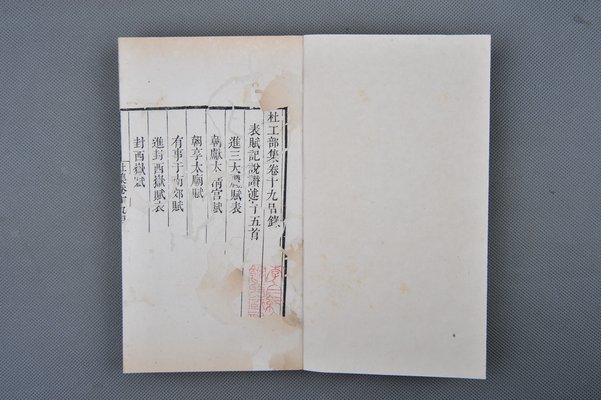 杜工部集卷十九目錄
表賦記說讚述十五首
進三大禮賦表
朝獻太清宮賦
朝享太廟賦
有事于南郊賦
進封西嶽賦表
封西嶽賦